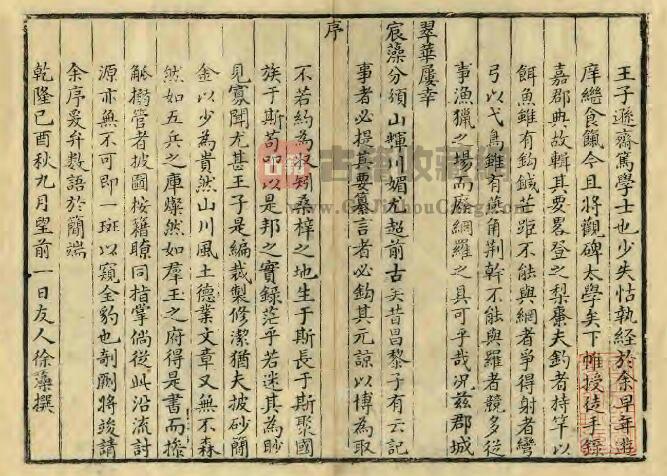 王子遜齋篤學士也少失怙執經於余早年遊
庠繼食餼今且將觀碑太學矣下帷授徒手録
嘉郡典故輯其要畧登之梨棗夫釣者持竿以
餌魚雖有鈎鍼芒距不能與網者爭得射者彎
弓以弋鳥雖有燕角荆幹不能與羅者競多從
事漁獵之塲而廢網羅之具可乎哉况兹郡城
翠華屢幸
宸藻分頒山輝川媚尤超前古矣昔昌黎子有云記
事者必提其要纂言者必鈎其元諒以博為取
不若約為收矧桑梓之地生于斯長于斯聚國
族于斯苟叩以是邦之實録茫乎若迷其為耻
見寡聞尤甚王子是編裁製修潔猶夫披砂簡
金以少為貴然山川風土德業文章又無不森
然如五兵之庫燦然如羣玉之府得是書而操
觚搦管者披圖按籍瞭同指掌倘從此沿流討
源亦無不可即一斑以窺全豹也剞劂將竣請
余序爰弁數語於簡端
乾隆己酉秋九月望前一日友人徐藻撰
序
古籍收藏網
www.GuJiShouCang.com